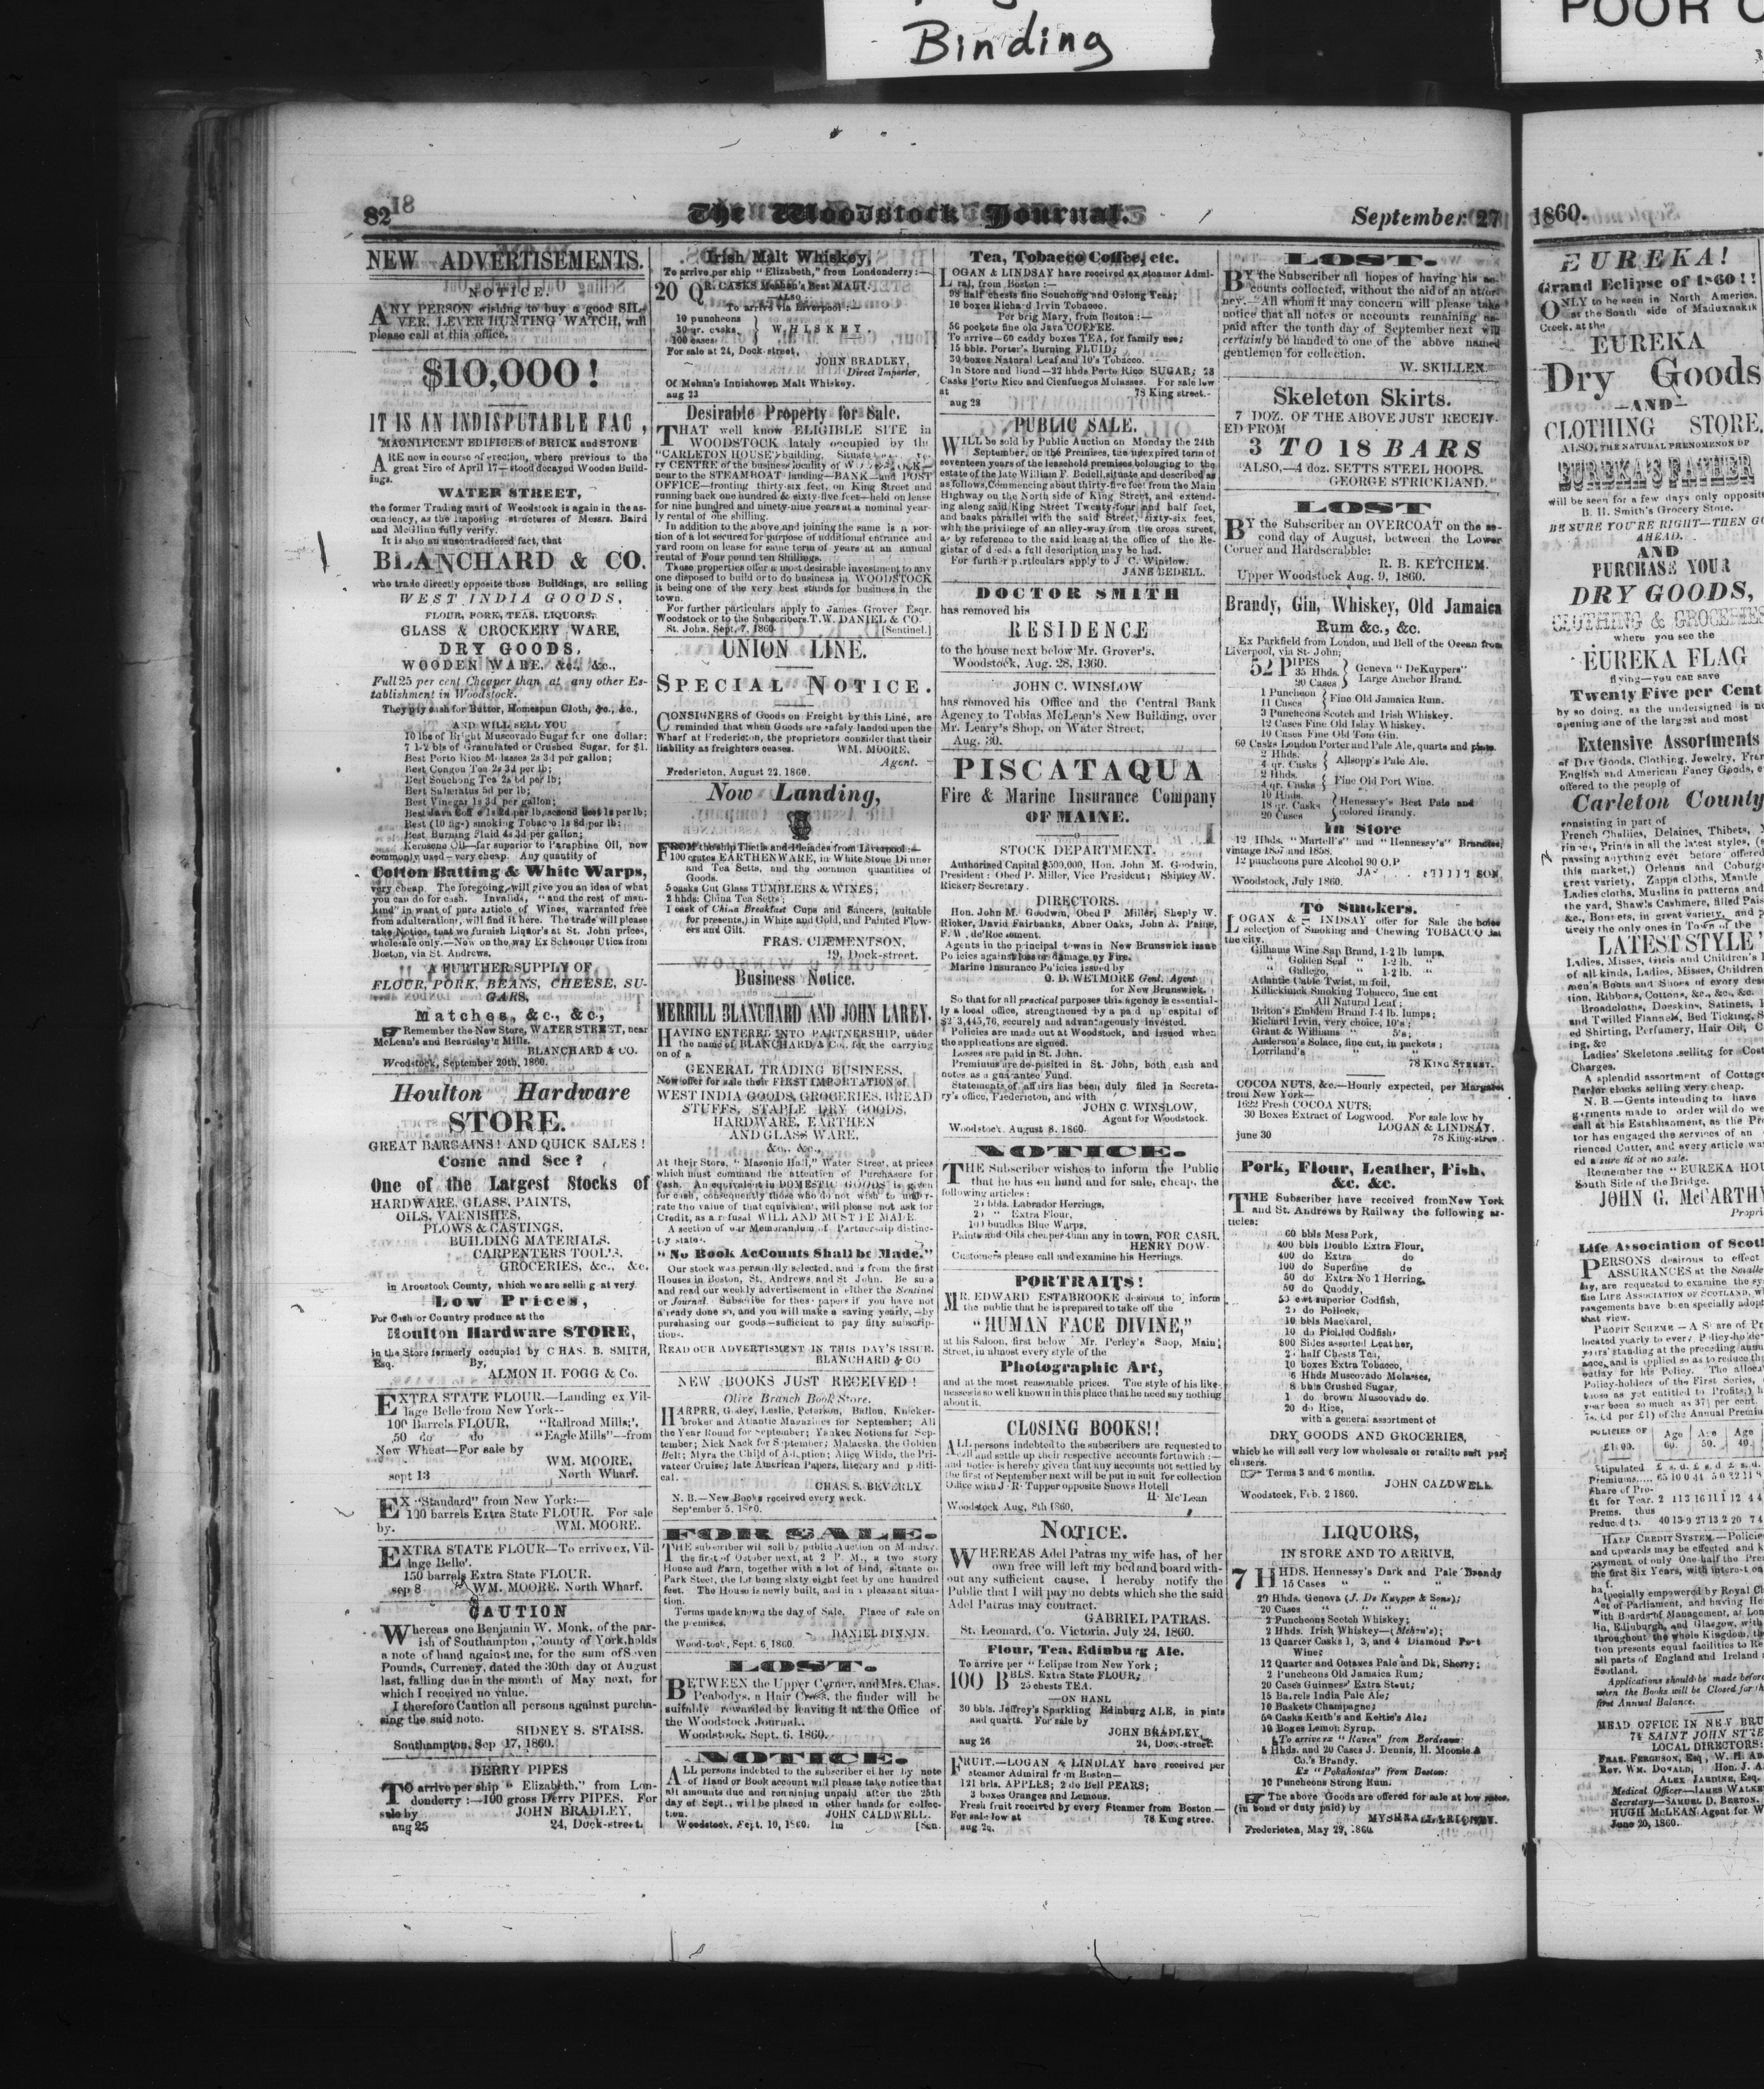 Binding
POOR
82
The Woodstock Journal.
September 27
1860.
NEW ADVERTISEMENTS.
NOTICE.
ANY PERSON wishing to buy a good SIL-
VER, LEVER HUNTING WATCH, will
please call at this office.
$10,000!
IT IS AN INDISPUTABLE FAC ,
MAGNIFICENT EDIFICES of BRICK and STONE
ARE now in course of erection, where previous to the
great Fire of April 17—stood decayed Wooden Build-
ings.
WATER STREET,
the former Trading mart of Woodstock is again in the as-
cendency, as the imposing structures of Messrs. Baird
and McGlinn fully verify.
It is also an uncontradicted fact, that
BLANCHARD & CO.
who trade directly opposite those Buildings, are selling
WEST INDIA GOODS,
FLOUR, PORK, TEAS, LIQUORS,
GLASS & CROCKERY WARE,
DRY GOODS,
WOODEN WARE, &c., &c.,
Full 25 per cent Cheaper than at any other Es-
tablishment in Woodstock.
They pay cash for Butter, Homespun Cloth, &c., &c.,
AND WILL SELL YOU
10 lbs of Bright Muscovado Sugar for one dollar;
7 1-2 bls of Granulated or Crushed Sugar, for $1.
Best Porto Rico Molasses 2s 3d per gallon;
Best Congou Tea 2s 3d per lb;
Best Souchong Tea 2s 6d per lb;
Best Salaratus 5d per lb;
Best Vinegar 1s 3d per gallon;
Best Java Coff e 1s 2d per lb, second best 1s per lb;
Best (10 fig-) smoking Tobacco 1s 8d per lb;
Best Burning Fluid 4s 3d per gallon;
Kerosene Oil—far superior to Paraphine Oil, now
commonly used—very cheap. Any quantity of
Cotton Batting & White Warps,
very cheap. The foregoing will give you an idea of what
you can do for cash. Invalids, "and the rest of man-
kind" in want of pure article of Wines, warranted free
from adulteration, will find it here. The trade will please
take Notice, that we furnish Liquor's at St. John prices,
wholesale only.—Now on the way Ex Schooner Utica from
Boston, via St. Andrews.
A FURTHER SUPPLY OF
FLOUR, PORK, BEANS, CHEESE, SU-
GARS,
Matches, &c., &c,
Remember the New Store, WATER STREET, near
McLean's and Beardsley's Mills.
BLANCHARD & CO.
Woodstock, September 20th, 1860.
Houlton Hardware
STORE.
GREAT BARGAINS! AND QUICK SALES!
Come and See?
One of the Largest Stocks of
HARDWARE, GLASS, PAINTS,
OILS, VARNISHES,
PLOWS & CASTINGS,
BUILDING MATERIALS,
CARPENTERS TOOL'S,
GROCERIES, &c., &c.
in Aroostook County, which we are selling at very
Low Prices,
For Cash or Country produce at the
Houlton Hardware STORE,
in the Store formerly occupied by CHAS. B. SMITH,
Esq. By,
ALMON H. FOGG & Co.
EXTRA STATE FLOUR.—Landing ex Vil-
lage Belle from New York—
100 Barrels FLOUR, "Railroad Mills;',
50 do do "Eagle Mills"—from
New Wheat—For sale by
WM. MOORE,
sept 13 North Wharf.
EX "Standard" from New York:—
100 barrels Extra State FLOUR. For sale
by. WM. MOORE.
EXTRA STATE FLOUR—To arrive ex, Vil-
lage Belle'.
150 barrels Extra State FLOUR.
sep 8 WM. MOORE. North Wharf.
CAUTION
Whereas one Benjamin W. Monk, of the par-
ish of Southampton, County of York, holds
a note of hand against me, for the sum of Seven
Pounds, Currency, dated the 30th day of August
last, falling due in the month of May next, for
which I received no value.
I therefore Caution all persons against purcha-
sing the said note.
SIDNEY S. STAISS.
Southampton, Sep 17, 1860.
DERRY PIPES
TO arrive per ship "Elizabeth," from Lon-
donderry :—100 gross Derry PIPES. For
sale by JOHN BRADLEY,
aug 25 24, Dock-street.
Irish Malt Whiskey,
To arrive per ship "Elizabeth," from Londonderry:—
20 QR. CASKS Mehan's Best MALT.
ALSO
To arrive via Liverpool:—
10 puncheons
30 qr. casks, WHISKEY.
100 cases
For sale at 24, Dock-street,
JOHN BRADLEY,
Direct Importer,
Of Mehan's Innishowen Malt Whiskey.
aug 23
Desirable Property for Sale.
THAT well know ELIGIBLE SITE in
WOODSTOCK lately occupied by the
"CARLETON HOUSE" building. Situate
CENTRE of the business locality of
near to the STEAMBOAT landing—BANK—and POST
OFFICE—fronting thirty-six feet, on King Street and
running back one hundred & sixty-five feet—held on lease
for nine hundred and ninety-nine years at a nominal year-
ly rental of one shilling.
In addition to the above and joining the same is a por-
tion of a lot secured for purpose of additional entrance and
yard room on lease for same term of years at an annual
rental of Four pound ten Shillings.
These properties offer a most desirable investment to any
one disposed to build or to do business in WOODSTOCK
it being one of the very best stands for business in the
town.
For further particulars apply to James Grover Esqr.
Woodstock or to the Subscribers. T.W. DANIEL & CO.
St. John, Sept. 7, 1860. [Sentinel.]
UNION LINE.
SPECIAL NOTICE.
CONSIGNERS of Goods on Freight by this Line, are
reminded that when Goods are safely landed upon the
Wharf at Fredericton, the proprietors consider that their
liability as freighters ceases. WM. MOORE,
Agent.
Fredericton, August 22, 1860.
Now Landing,
FROM the ship Thetis and Pleiades from Liverpool:—
100 crates EARTHENWARE, in White Stone Dinner
and Tea Setts, and the common quantities of
Goods.
5 casks Cut Glass TUMBLERS & WINES;
2 hhds: China Tea Setts;
1 cask of China Breakfast Cups and Saucers, (suitable
for presents,) in White and Gold, and Painted Flow-
ers and Gilt.
FRAS. CLEMENTSON,
19, Dock-street.
Business Notice.
MERRILL BLANCHARD AND JOHN LAREY.
HAVING ENTERED INTO PARTNERSHIP, under
the name of BLANCHARD & Co., for the carrying
on of a
GENERAL TRADING BUSINESS.
Now offer for sale their FIRST IMPORTATION of
WEST INDIA GOODS, GROCERIES, BREAD
STUFFS, STAPLE DRY GOODS,
HARDWARE, EARTHEN
AND GLASS WARE,
&c., &c.,
At their Store, "Masonic Hall," Water Street, at prices
which must command the attention of Purchasers for
Cash. An equivalent in DOMESTIC GOODS is given
for cash, consequently those who do not wish to under-
rate the value of that equivalent, will please not ask for
Credit, as a refusal WILL AND MUST BE MADE.
A section of our Memorandum of Partnership distinc-
tly states.
"No Book AcCounts Shall be Made."
Our stock was personally selected, and is from the first
Houses in Boston, St. Andrews and St John. Be sure
and read our weekly advertisement in either the Sentinel
or Journal. Subscribe for these papers if you have not
already done so, and you will make a saving yearly,—by
purchasing our goods—sufficient to pay fifty subscrip-
tions.
READ OUR ADVERTISMENT IN THIS DAY'S ISSUE.
BLANCHARD & CO
NEW BOOKS JUST RECEIVED!
Olive Branch Book Store.
HARPER, Godey, Leslie, Peterson, Ballou, Knicker-
broker and Atlantic Magazines for September; All
the Year Round for September; Yankee Notions for Sep-
tember; Nick Nack for September; Malaeska, the Golden
Belt; Myra the Child of Adoption; Alice Wilde, the Pri-
vateer Cruise; late American Papers, literary and politi-
cal.
CHAS. S. BEVERLY
N. B.—New Books received every week.
September 5, 1860.
FOR SALE.
THE subscriber will sell by public Auction on Monday,
the first of October next, at 2 P. M., a two story
House and Barn, together with a lot of land, situate on
Park Street, the lot being sixty eight feet by one hundred
feet. The House is newly built, and in a pleasant situa-
tion.
Terms made known the day of Sale. Place of sale on
the premises.
DANIEL DINNIN.
Woodstock, Sept. 6, 1860.
LOST.
BETWEEN the Upper Corner, and Mrs. Chas.
Peabodys, a Hair Cross, the finder will be
suitably rewarded by leaving it at the Office of
the Woodstock Journal.
Woodstock, Sept. 6, 1860.
NOTICE.
ALL persons indebted to the subscriber either by note
of Hand or Book account will please take notice that
all amounts due and remaining unpaid after the 25th
day of Sept., will be placed in other hands for collec-
tion. JOHN CALDWELL.
Woodstock, Sept. 10, 1860. 1m [Sen.
Tea, Tobacco Coffee, etc.
LOGAN & LINDSAY have received ex steamer Admi-
ral, from Boston:—
98 half chests fine Souchong and Oolong Teas;
10 boxes Richard Irvin Tobacco.
Per brig Mary, from Boston:—
56 pockets fine old Java COFFEE.
To arrive—60 caddy boxes TEA, for family use;
15 bbls. Porter's Burning FLUID;
30 boxes Natural Leaf and 10's Tobacco.
In Store and Bond—22 hhds Porto Rico SUGAR; 23
Casks Porto Rico and Cienfuegos Molasses. For sale low
at 78 King street.
aug 28
PUBLIC SALE.
WILL be sold by Public Auction on Monday the 24th
September, on the Premises, the unexpired term of
seventeen years of the leasehold premises belonging to the
estate of the late William F. Bedell, situate and described as
as follows, Commencing about thirty-five feet from the Main
Highway on the North side of King Street, and extend-
ing along said King Street Twenty-four and half feet,
and backs parallel with the said Street, sixty-six feet,
with the privilege of an alley-way from the cross street,
as by reference to the said lease at the office of the Re-
gistar of deeds a full description may be had.
For further particulars apply to J. C. Winslow.
JANE BEDELL.
DOCTOR SMITH
has removed his
RESIDENCE
to the house next below Mr. Grover's.
Woodstock, Aug. 28, 1860.
JOHN C. WINSLOW
has removed his Office and the Central Bank
Agency to Tobias McLean's New Building, over
Mr. Leary's Shop, on Water Street,
Aug. 30.
PISCATAQUA
Fire & Marine Insurance Company
OF MAINE.
STOCK DEPARTMENT.
Authorized Capital $500,000, Hon. John M. Goodwin,
President: Obed P. Miller, Vice President; Shipley W.
Ricker, Secretary.
DIRECTORS.
Hon. John M. Goodwin, Obed P. Miller, Sheply W.
Ricker, David Fairbanks, Abner Oaks, John A. Paine,
F. W. de'Rochmont.
Agents in the principal towns in New Brunswick issue
Policies against loss or damage by Fire.
Marine Insurance Policies issued by
O. D. WETMORE Genl. Agent
for New Brunswick.
So that for all practical purposes this agency is essential-
ly a local office, strengthened by a paid up capital of
securely and advantageously invested.
Policies are made out at Woodstock, and issued when
the applications are signed.
Losses are paid in St. John.
Premiums are deposited in St. John, both cash and
notes as a guarantee Fund.
Statements of affairs has been duly filed in Secreta-
ry's office, Fredericton, and with
JOHN C. WINSLOW,
Agent for Woodstock.
Woodstock, August 8, 1860
NOTICE.
THE Subscriber wishes to inform the Public
that he has on hand and for sale, cheap, the
following articles:
bbls. Labrador Herrings,
" Extra Flour,
100 bundles Blue Warps,
Paints and Oils cheaper than any in town, FOR CASH.
HENRY DOW.
Customers please call and examine his Herrings.
PORTRAITS!
MR. EDWARD ESTABROOKE desirous to inform
the public that he is prepared to take off the
"HUMAN FACE DIVINE,"
at his Saloon, first below Mr. Perley's Shop, Main
Street, in almost every style of the
Photographic Art,
and at the most reasonable prices. The style of his like-
nesses is so well known in this place that he need say nothing
about it.
CLOSING BOOKS!!
ALL persons indebted to the subscribers are requested to
call and settle up their respective accounts forthwith:—
and notice is hereby given that any accounts not settled by
the first of September next will be put in suit for collection
Office with J. R. Tupper opposite Snows Hotell
H. McLean
Woodstock Aug, 8th 1860,
NOTICE.
WHEREAS Adel Patras my wife has, of her
own free will left my bed and board with-
out any sufficient cause, I hereby notify the
Public that I will pay no debts which she the said
Adel Patras may contract.
GABRIEL PATRAS.
St. Leonard, Co. Victoria, July 24, 1860.
Flour, Tea, Edinburg Ale.
To arrive per "Eclipse from New York;
100 BBLS. Extra State FLOUR;
25 chests TEA.
—ON HANL
30 bbls. Jeffrey's Sparkling Edinburg ALE, in pints
and quarts. For sale by
JOHN BRADLEY,
aug 26 24, Dock-street.
FRUIT.—LOGAN & LINDLAY have received per
steamer Admiral from Boston—
121 brls. APPLES; 2 do Bell PEARS;
3 boxes Oranges and Lemons.
Fresh fruit received by every Steamer from Boston.—
For sale low at 78 King stree.
aug 2.
LOST.
BY the Subscriber all hopes of having his ac-
counts collected, without the aid of an attor-
ney.—All whom it may concern will please take
notice that all notes or accounts remaining un-
paid after the tonth day of September next will
certainly be handed to one of the above named
gentlemen for collection.
W. SKILLEN.
Skeleton Skirts.
7 DOZ. OF THE ABOVE JUST RECEIV-
ED FROM
3 TO 18 BARS
ALSO,—4 doz. SETTS STEEL HOOPS.
GEORGE STRICKLAND."
LOST
BY the Subscriber an OVERCOAT on the se-
cond day of August, between the Lower
Corner and Hardscrabble:
R. B. KETCHEM.
Upper Woodstock Aug. 9, 1860.
Brandy, Gin, Whiskey, Old Jamaica
Rum &c., &c.
Ex Parkfield from London, and Bell of the Ocean from
Liverpool, via St. John;
52 PIPES
35 Hhds. Geneva "DeKuypers"
20 Cases Large Anchor Brand.
1 Puncheon
11 Cases Fine Old Jamaica Rum.
3 Puncheons Scotch and Irish Whiskey.
12 Cases Fine Old Islay Whiskey.
10 Cases Fine Old Tom Gin.
60 Casks London Porter and Pale Ale, quarts and pints.
2 Hhds.
4 qr. Casks Allsopp's Pale Ale.
2 Hhds.
4 qr. Casks Fine Old Port Wine.
10 Hhds.
18 qr. Casks Henessey's Best Pale and
20 Cases colored Brandy.
In Store
12 Hhds. "Martell's" and "Hennessy's" Brandies,
vintage 1857 and 1858.
12 puncheons pure Alcohol 90 O.P
Woodstock, July 1860.
To Smokers.
LOGAN & LINDSAY offer for Sale the
selection of Smoking and Chewing TOBACCO
the city.
Gilhaus Wine Sap Brand, 1-2 lb lumps,
" Golden Seal " 1-2 lb. "
" Gallego, " 1-2 lb. "
Atlantic Cable Twist, in foil,
Killickinick Smoking Tobacco, fine cut
All Natural Leaf;
Briton's Emblem Brand 1-4 lb. lumps;
Richard Irvin, very choice, 10's;
Grant & Williams " 5's;
Anderson's Solace, fine cut, in packets;
Lorriland's " "
78 KING STREET.
COCOA NUTS, &c.—Hourly expected, per Margaret
from New York—
1622 Fresh COCOA NUTS;
30 Boxes Extract of Logwood. For sale low by
LOGAN & LINDSAY,
june 30 78 King-stree
Pork, Flour, Leather, Fish,
&c. &c.
THE Subscriber have received from New York
and St. Andrews by Railway the following ar-
ticles;
60 bbls Mess Pork,
400 bbls Double Extra Flour,
400 do Extra do
100 do Superfine do
50 do Extra No 1 Herring,
50 do Quoddy,
superior Codfish,
do Pollock,
10 bbls Mackarel,
10 do Pickled Codfish,
800 Sides assorted Leather,
half Chests Tea,
10 boxes Extra Tobacco,
6 Hhds Muscovado Molasses,
8 bbls Crushed Sugar,
do brown Muscovado do.
20 do Rice,
with a general assortment of
DRY GOODS AND GROCERIES,
which he will sell very low wholesale or retail to suit pur
chasers.
Terms 3 and 6 months.
JOHN CALDWELL.
Woodstock, Feb. 2 1860.
LIQUORS,
IN STORE AND TO ARRIVE,
7 HHDS. Hennessy's Dark and Pale Brandy
15 Cases " " "
20 Hhds. Geneva (J. De Kuyper & Sons);
20 Cases " " "
2 Puncheons Scotch Whiskey;
2 Hhds. Irish Whiskey—(Mehen's);
13 Quarter Casks 1, 3, and 4 Diamond Port
Wine;
12 Quarter and Octaves Pale and Dk, Sherry;
2 Puncheons Old Jamaica Rum;
20 Case's Guinness' Extra Stout;
15 Barrels India Pale Ale;
10 Baskets Champagne;
50 Casks Keith's and Keltie's Ale;
10 Boxes Lemon Syrup.
To arrive ex "Raven" from Bordeaux:
5 Hhds. and 20 Cases J. Dennis, H. Mounie &
Co.'s Brandy.
Ex "Pokahontas" from Boston:
10 Puncheons Strong Rum.
The above Goods are offered for sale at low rates.
(in bond or duty paid) by
Fredericton, May 29, 1860.
EUREKA!
Grand Eclipse of 1860!!
ONLY to be seen in North America,
at the South side of Maduxnakik
Creek, at the
EUREKA
Dry Goods
—AND—
CLOTHING STORE.
ALSO, THE NATURAL PHENOMENON OF
EUREKA'S FATHER
will be seen for a few days only opposite
B. H. Smith's Grocery Store.
BE SURE YOU'RE RIGHT—THEN GO
AHEAD.
AND
PURCHASE YOUR
DRY GOODS,
CLOTHING & GROCERIES
where you see the
EUREKA FLAG
flying—you can save
Twenty Five per Cent
by so doing, as the undersigned is
opening one of the largest and most
Extensive Assortments
of Dry Goods, Clothing, Jewelry,
English and American Fancy Goods,
offered to the people of
Carleton County
consisting in part of
French Challies, Delaines, Thibets,
Prints in all the latest styles,
passing anything ever before offered
this market,) Orleans and
great variety, Zappa cloths, Mantle
Ladies cloths, Muslins in patterns and
the yard, Shawls Cashmere, filled
&c., Bonnets, in great variety, and
tively the only ones in Town of the
LATEST STYLE'
Ladies, Misses, Girls and Children's
of all kinds, Ladies, Misses, Children
men's Boots and Shoes of every
tion, Ribbons, Cottons, &c., &c., &c.
Broadcloths, Doeskins, Satinets,
and Twilled Flannels, Bed Ticking,
ed Shirting, Perfumery, Hair Oil,
ing, &c
Ladies' Skeletons selling for Cost
Charges.
A splendid assortment of Cottage
Parlor clocks selling very cheap.
N. B.—Gents intending to have
garments made to order will do
call at his Establishment, as the
tor has engaged the services of an
rienced Cutter, and every article
ed a sure fit or no sale.
Remember the "EUREKA
South Side of the Bridge.
JOHN G. McCARTHY
Life Association of
PERSONS desirous to effect
ASSURANCES at the
are requested to examine the
the LIFE ASSOCIATION OF SCOTLAND,
rangements have been specially
that view.
PROFIT SCHEME—A Share of
located yearly to every
years' standing at the preceding
ance, and is applied so as to reduce
outlay for his Policy. The
Policy-holders of the First Series,
those as yet entitled to Profits,)
year been so much as 37½ per cent.
of the Annual
POLICIES OF Age Age Age
£1000. 60. 50. 40.
Stipulated £ s. d. £ s. d. £ s. d.
Premiums
Share of Pro-
fit for Year.
Prems. thus
reduced to.
HALF CREDIT SYSTEM.—
and upwards may be effected and
payment of only One-half the
the first Six Years, with interest on
half.
Specially empowered by Royal
Act of Parliament, and having
With Boards of Management, at
lin, Edinburgh, and Glasgow, with
throughout the whole Kingdom,
tion presents equal facilities to
all parts of England and Ireland
Scotland.
Applications should be made before
when the Books will be Closed for
first Annual Balance.
HEAD OFFICE IN NEW
SAINT JOHN
LOCAL DIRECTORS:
FRAS. FERGUSON, Esq., W. H.
Rev. WM. DONALD, Hon. J. A.
ALEX JARDINE, Esq.
Medical Officer—JAMES
Secretary—SAMUEL D. BERTON.
HUGH McLEAN Agent for
June 20, 1860.